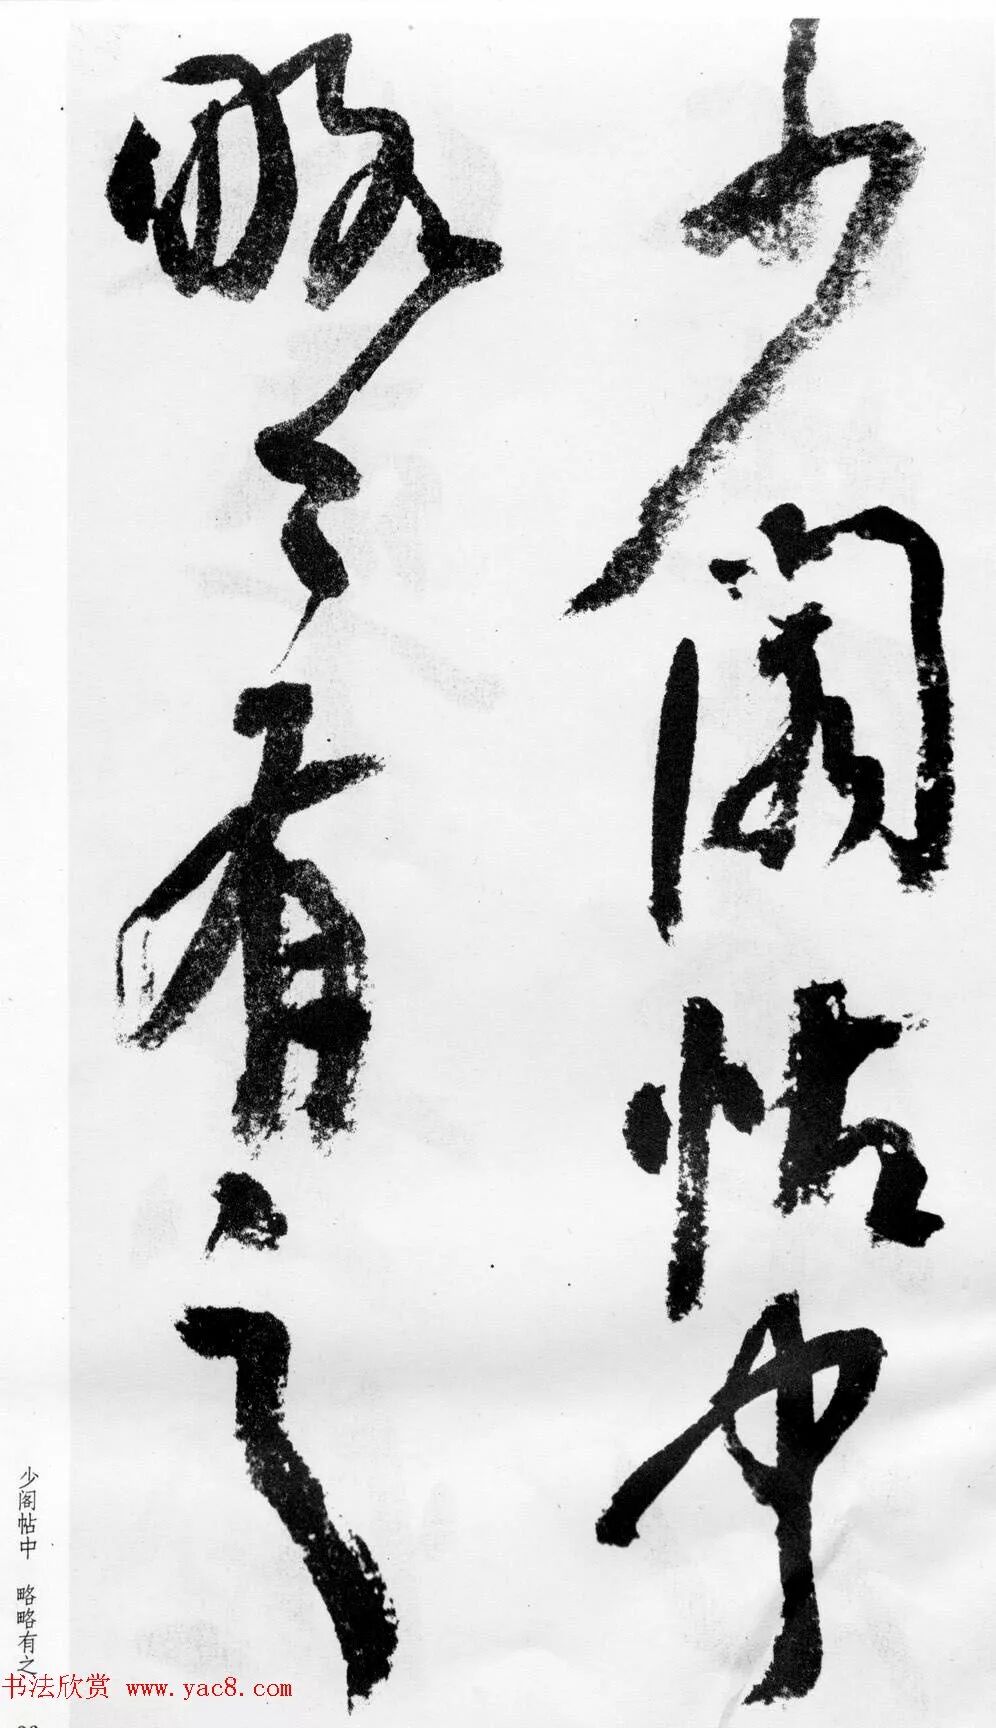 少阁帖中
略〻有之
少阁帖中　略略有之
书法欣赏 www.yac8.com